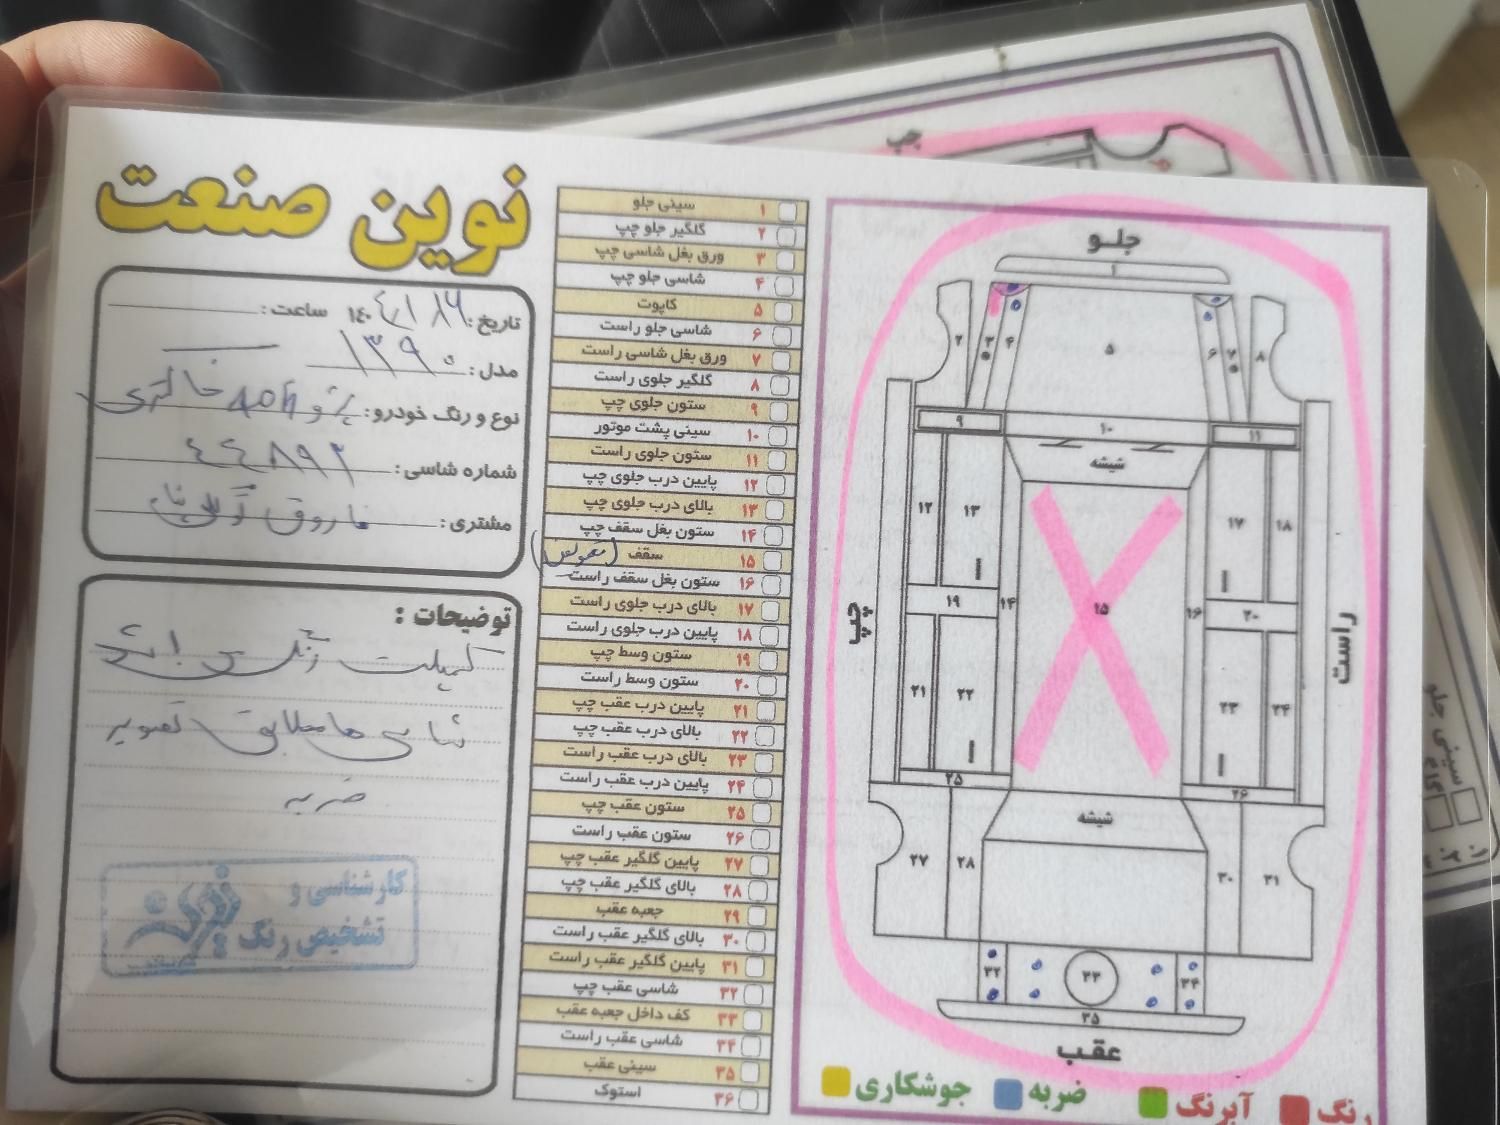 نوین صنعت
تاریخ: ۱۴۰۴/۱/۱۶ ساعت:
مدل: ۱۳۹۰
نوع و رنگ خودرو: پژو ۴۰۵ خاکستری
شماره شاسی: ۴۴۸۹۲
مشتری: فاروق
توضیحات :
کمپلت رنگ می باشد
شاسی ها مطابق تصویر
ضربه
کارشناسی و
تشخیص رنگ نوین
۱ سینی جلو
۲ گلگیر جلو چپ
۳ ورق بغل شاسی چپ
۴ شاسی جلو چپ
۵ کاپوت
۶ شاسی جلو راست
۷ ورق بغل شاسی راست
۸ گلگیر جلوی راست
۹ ستون جلوی چپ
۱۰ سینی پشت موتور
۱۱ ستون جلوی راست
۱۲ پایین درب جلوی چپ
۱۳ بالای درب جلوی چپ
۱۴ ستون بغل سقف چپ
۱۵ سقف (تعویض)
۱۶ ستون بغل سقف راست
۱۷ بالای درب جلوی راست
۱۸ پایین درب جلوی راست
۱۹ ستون وسط چپ
۲۰ ستون وسط راست
۲۱ پایین درب عقب چپ
۲۲ بالای درب عقب چپ
۲۳ بالای درب عقب راست
۲۴ پایین درب عقب راست
۲۵ ستون عقب چپ
۲۶ ستون عقب راست
۲۷ پایین گلگیر عقب چپ
۲۸ بالای گلگیر عقب چپ
۲۹ جعبه عقب
۳۰ بالای گلگیر عقب راست
۳۱ پایین گلگیر عقب راست
۳۲ شاسی عقب چپ
۳۳ کف داخل جعبه عقب
۳۴ شاسی عقب راست
۳۵ سینی عقب
۳۶ استوک
چپ
جلو
۱
۲ ۳ ۴ ۵ ۶ ۷ ۸
۹ ۱۰ ۱۱
شیشه
۱۲ ۱۳ ۱۷ ۱۸
چپ ۱۹ ۱۴ ۱۵ ۱۶ ۲۰ راست
۲۱ ۲۲ ۲۳ ۲۴
۲۵ ۲۶
شیشه
۲۷ ۲۸ ۳۰ ۳۱
۳۲ ۳۳ ۳۴
۳۵
عقب
رنگ آبرنگ ضربه جوشکاری
سینی جلو